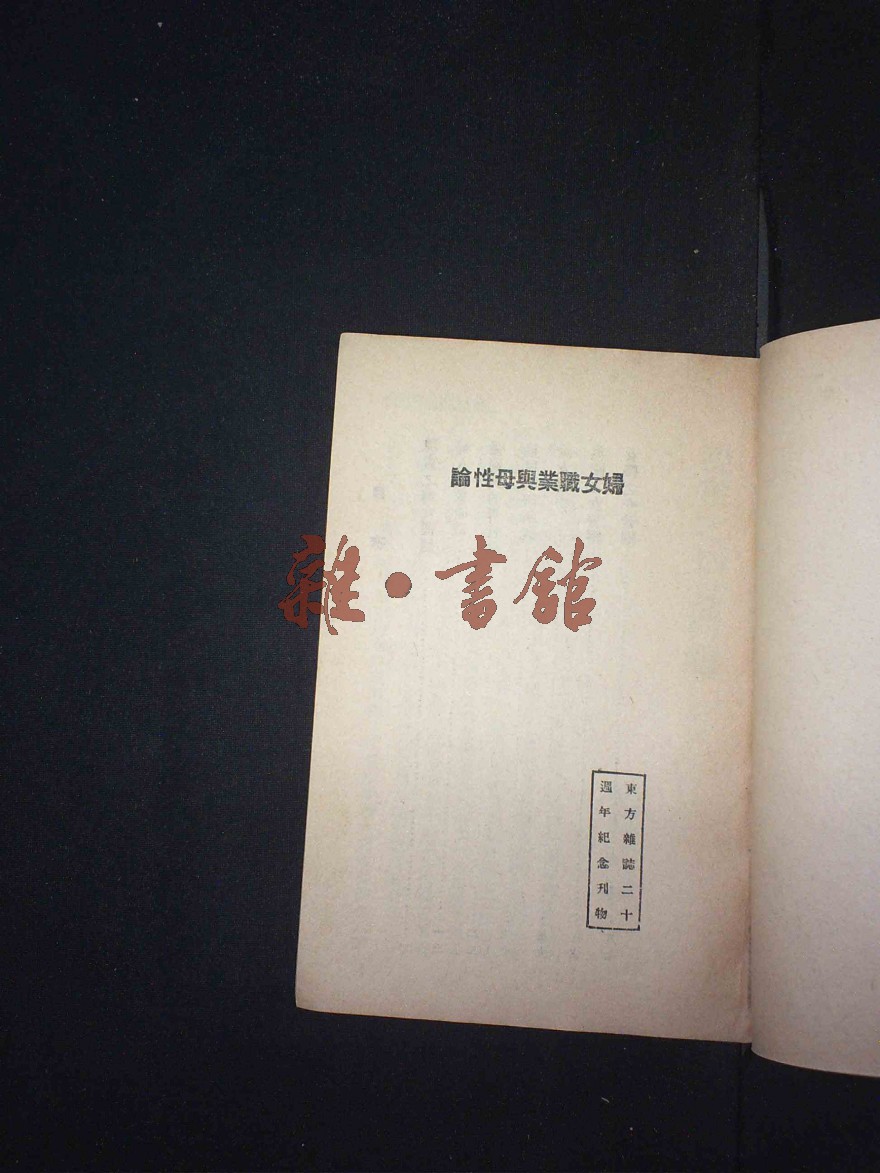 婦女職業與母性論
雜·書館
東方雜誌二十
週年紀念刊物